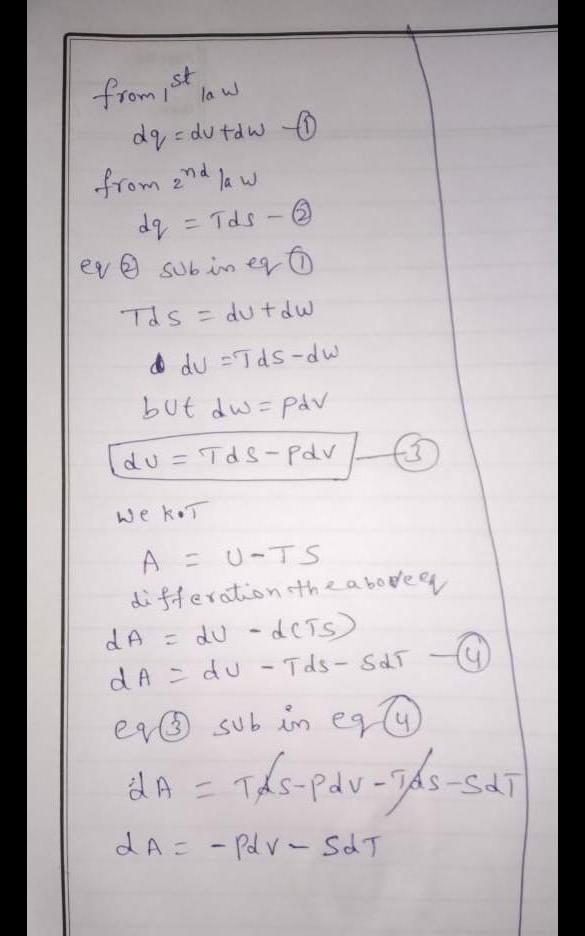 from 1st law
dq = du+dw -①
from 2nd law
dq = Tds - ②
eq ② sub in eq ①
Tds = du+dw
du = Tds-dw
but dw = pdv
du = Tds-pdv -③
we k.T
A = U-TS
differation the above eq
dA = du - d(Ts)
dA = du - Tds - SdT -④
eq ③ sub in eq ④
dA = Tds-pdv-Tds-SdT
dA = -Pdv - SdT